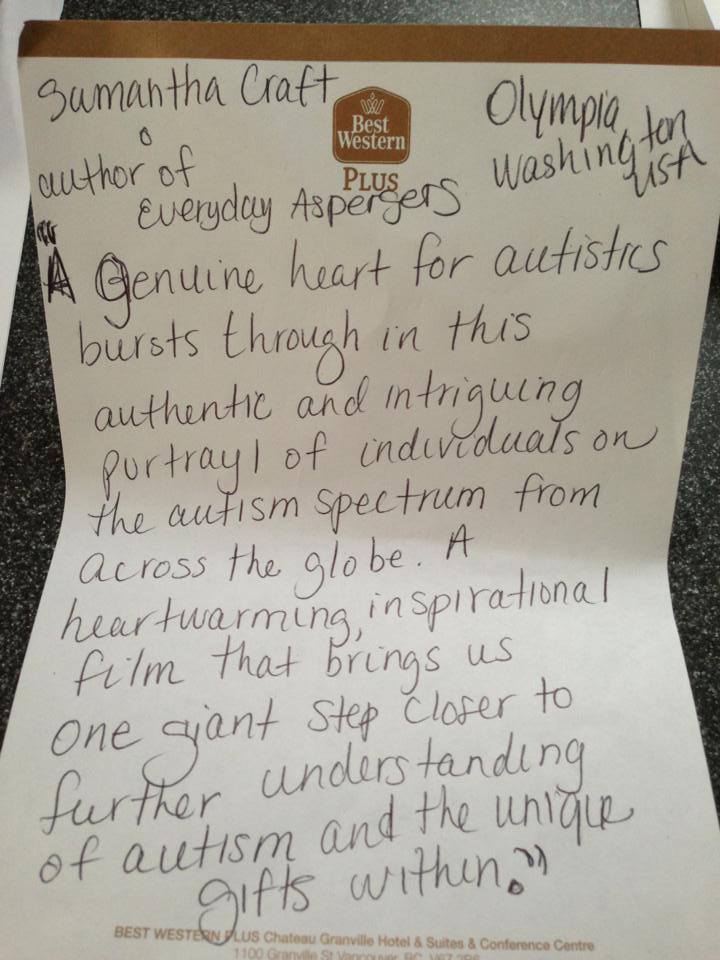 Samantha Craft
Best
Western
PLUS
Olympia,
Washington
USA
author of
Everyday Aspergers
"A Genuine heart for autistics
bursts through in this
authentic and intriguing
purtrayl of individuals on
the autism spectrum from
across the globe. A
heartwarming, inspirational
film that brings us
one giant step closer to
further understanding
of autism and the unique
gifts within."
BEST WESTERN PLUS Chateau Granville Hotel & Suites & Conference Centre
1100 Granville St Vancouver, BC